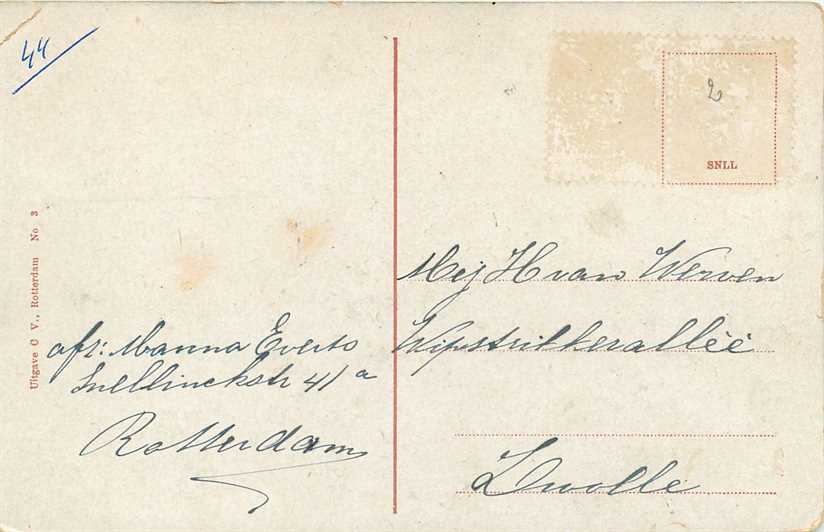 44
2
SNLL
Uitgave C V., Rotterdam No 3
afz: Manna Everts
Snellinckstr 41a
Rotterdam
Mej H van Werven
Wipstrikkerallëe
Zwolle